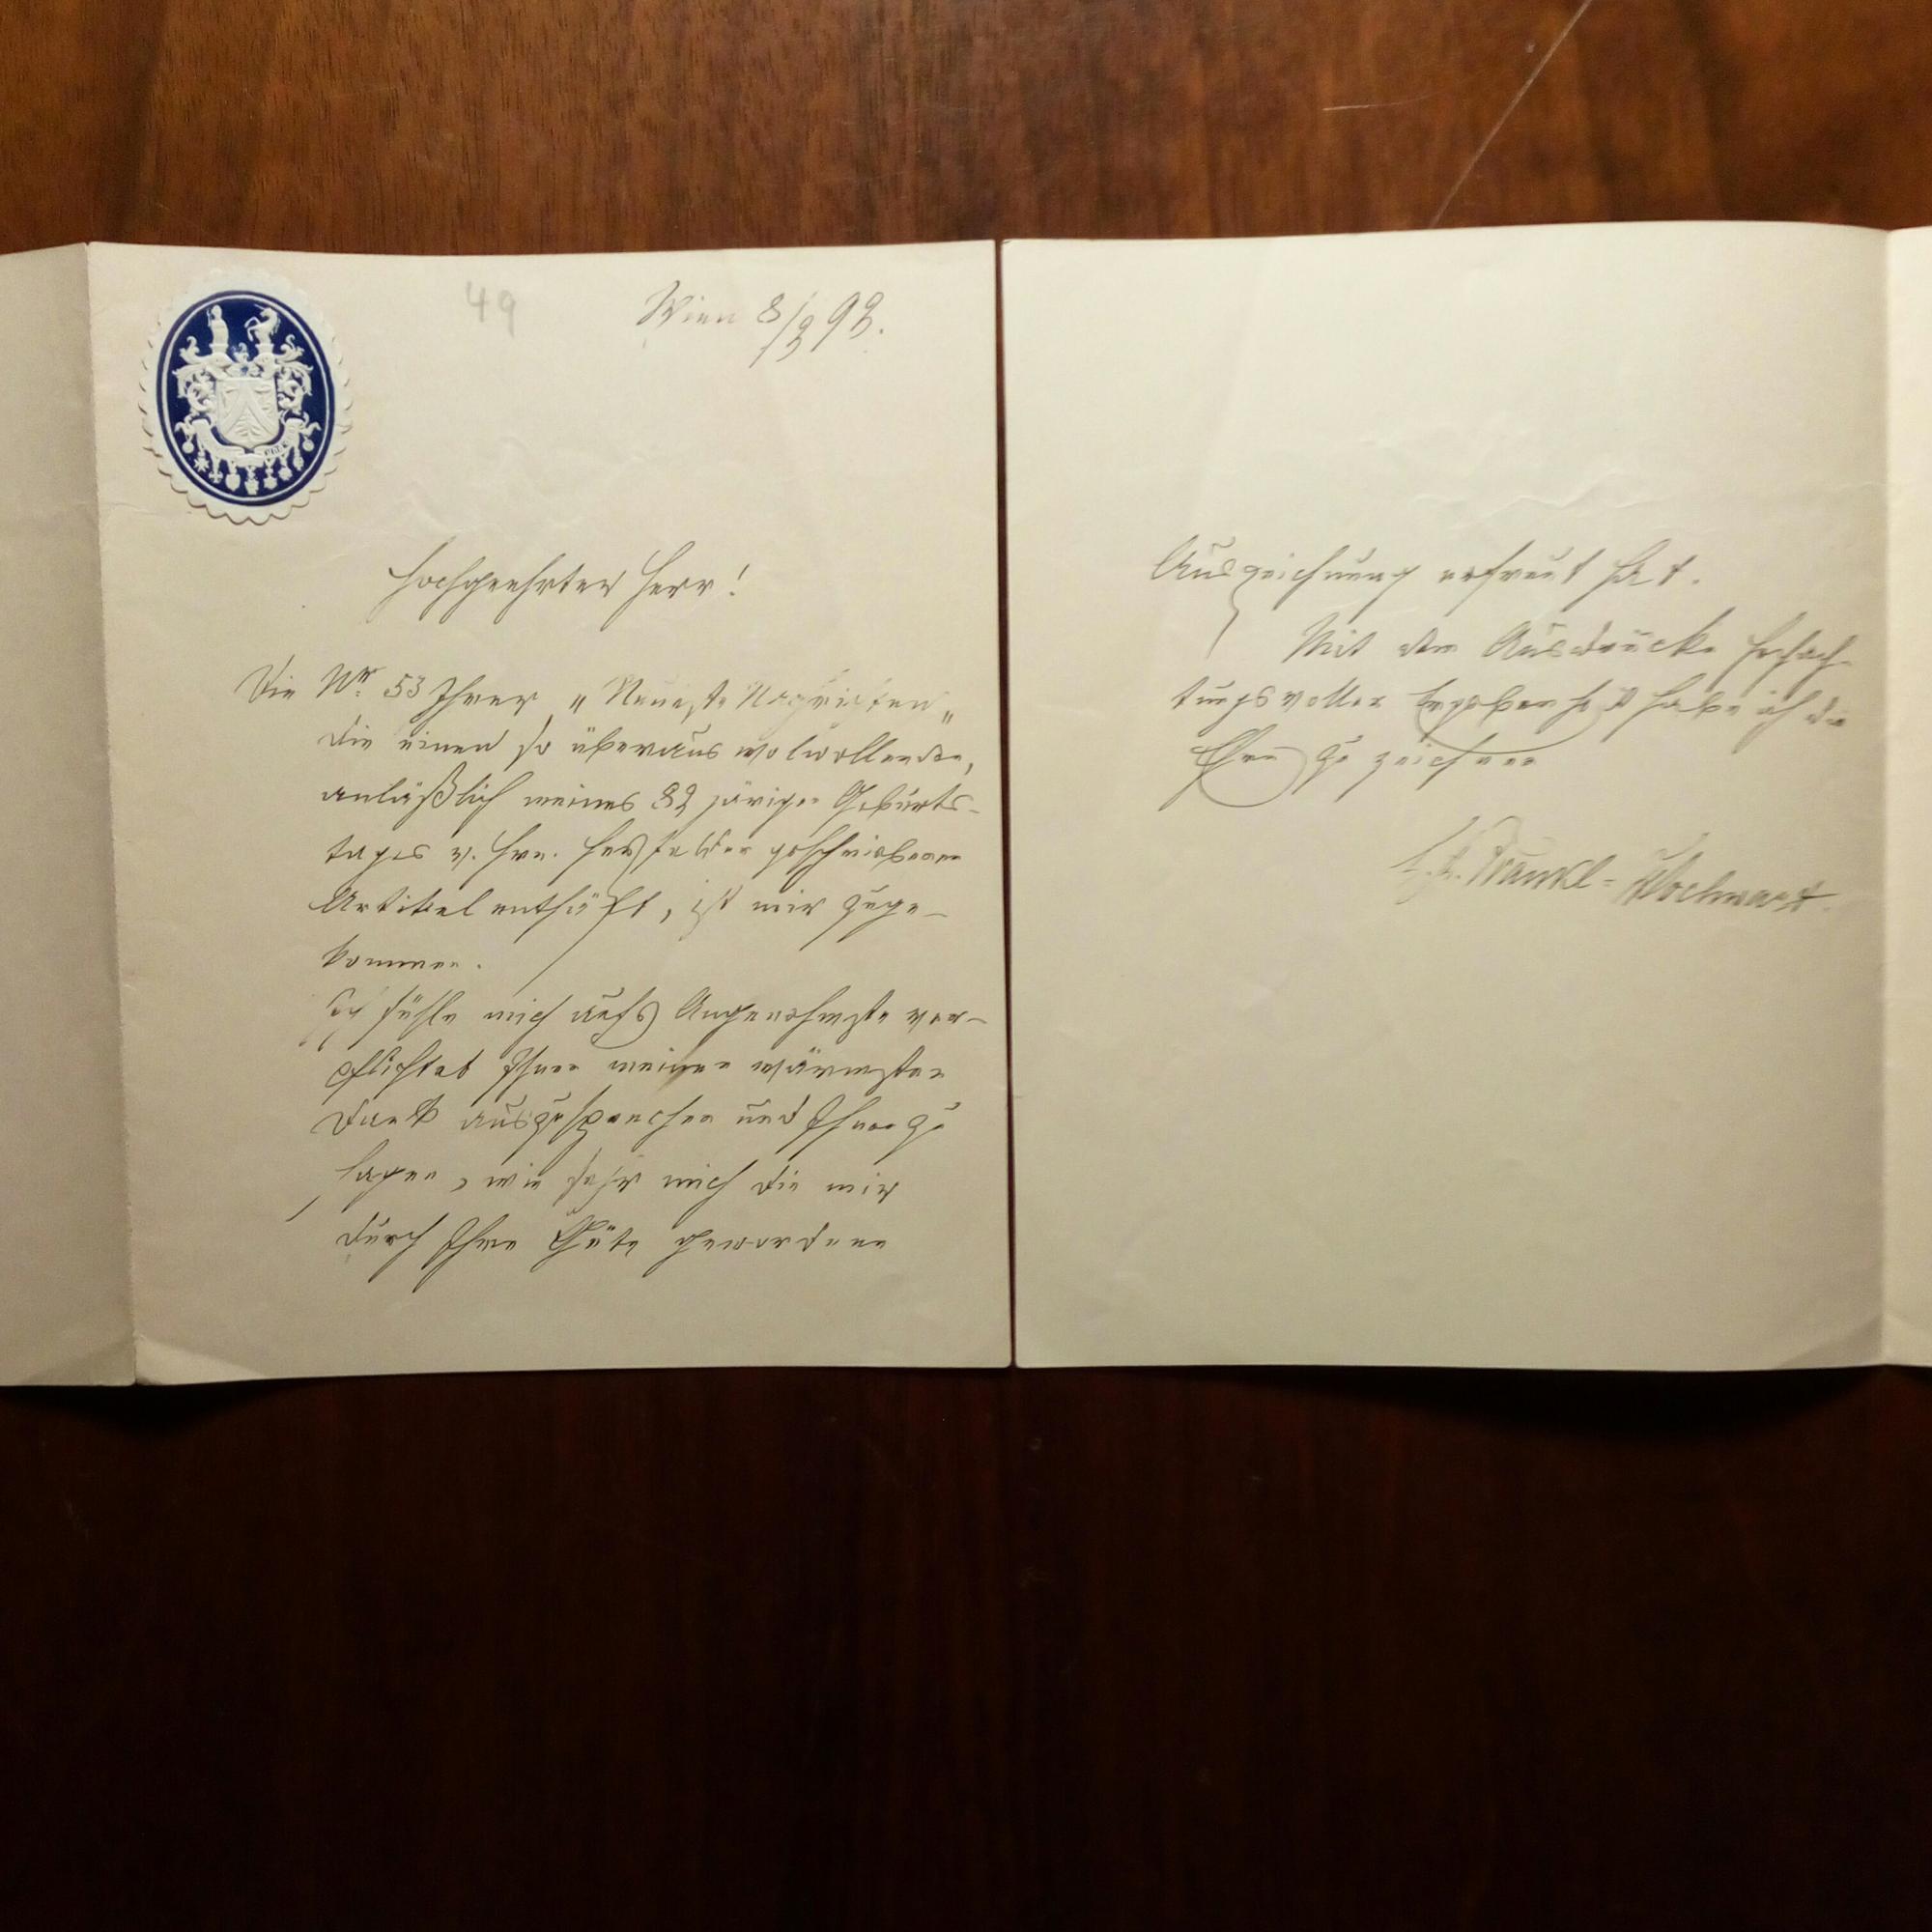 49
Wien 8/3 93.
Hochgeehrter Herr!
Die Nr. 53 Ihrer „Neueste Nachrichten„
die einen so überaus wolwollenden,
anläßlich meines 83 järigen Geburts-
tages v. Hrn. geschriebenen
Artikel enthält, ist mir zuge-
kommen.
Ich fühle mich aufs Angenehmste ver-
pflichtet Ihnen meinen wärmsten
Dank auszusprechen und Ihnen zu
sagen, wie sehr mich die mir
durch Ihre Güte gewordene
Auszeichnung erfreut hat.
Mit dem Ausdrucke hochach-
tungsvoller Ergebenheit habe ich die
Ehre zu zeichnen
L. A. Frankl-Hochwart.